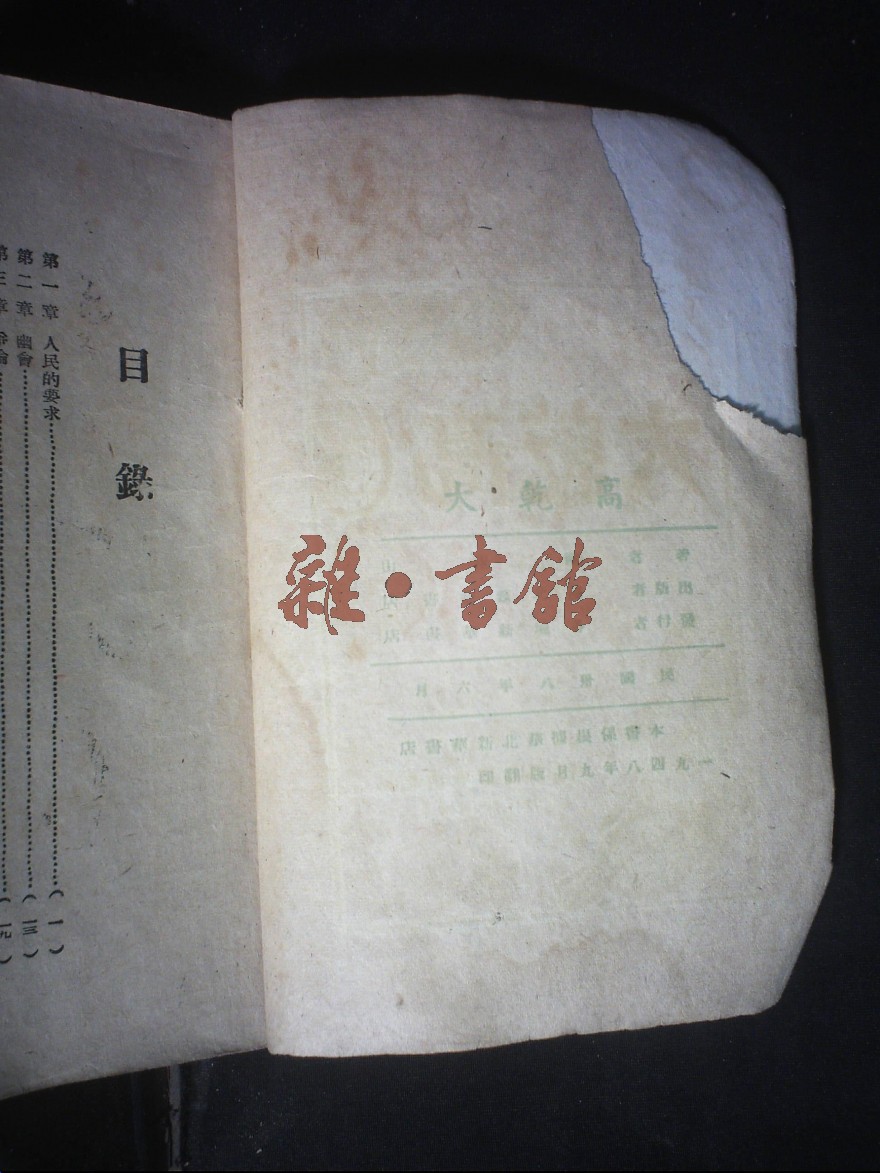 高乾大
著者
出版者
發行者
民國卅八年六月
本書係根據華北新華書店
一九四八年九月版翻印
雜·書館
目錄
第一章 人民的要求……(一)
第二章 幽會……(一三)
第三章 (一九)